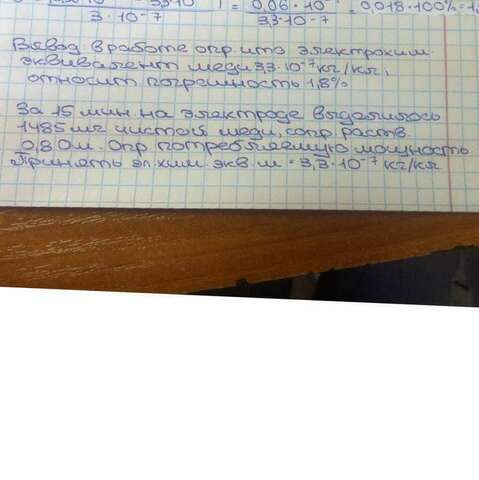 3·10⁻⁷ = 0,06·10 / 3,3·10⁻⁷ = 0,018·100% = 1,
Вывод в работе опр. что электрохим.
эквивалент меди 3,3·10⁻⁷ кг/кл,
относит погрешность 1,8%
За 15 мин. на электроде выделилось
1485 мг чистой меди, сопр. раств.
0,8 Ом. Опр. потребляемую мощность.
Принять эл. хим. экв. м = 3,3·10⁻⁷ кг/кл